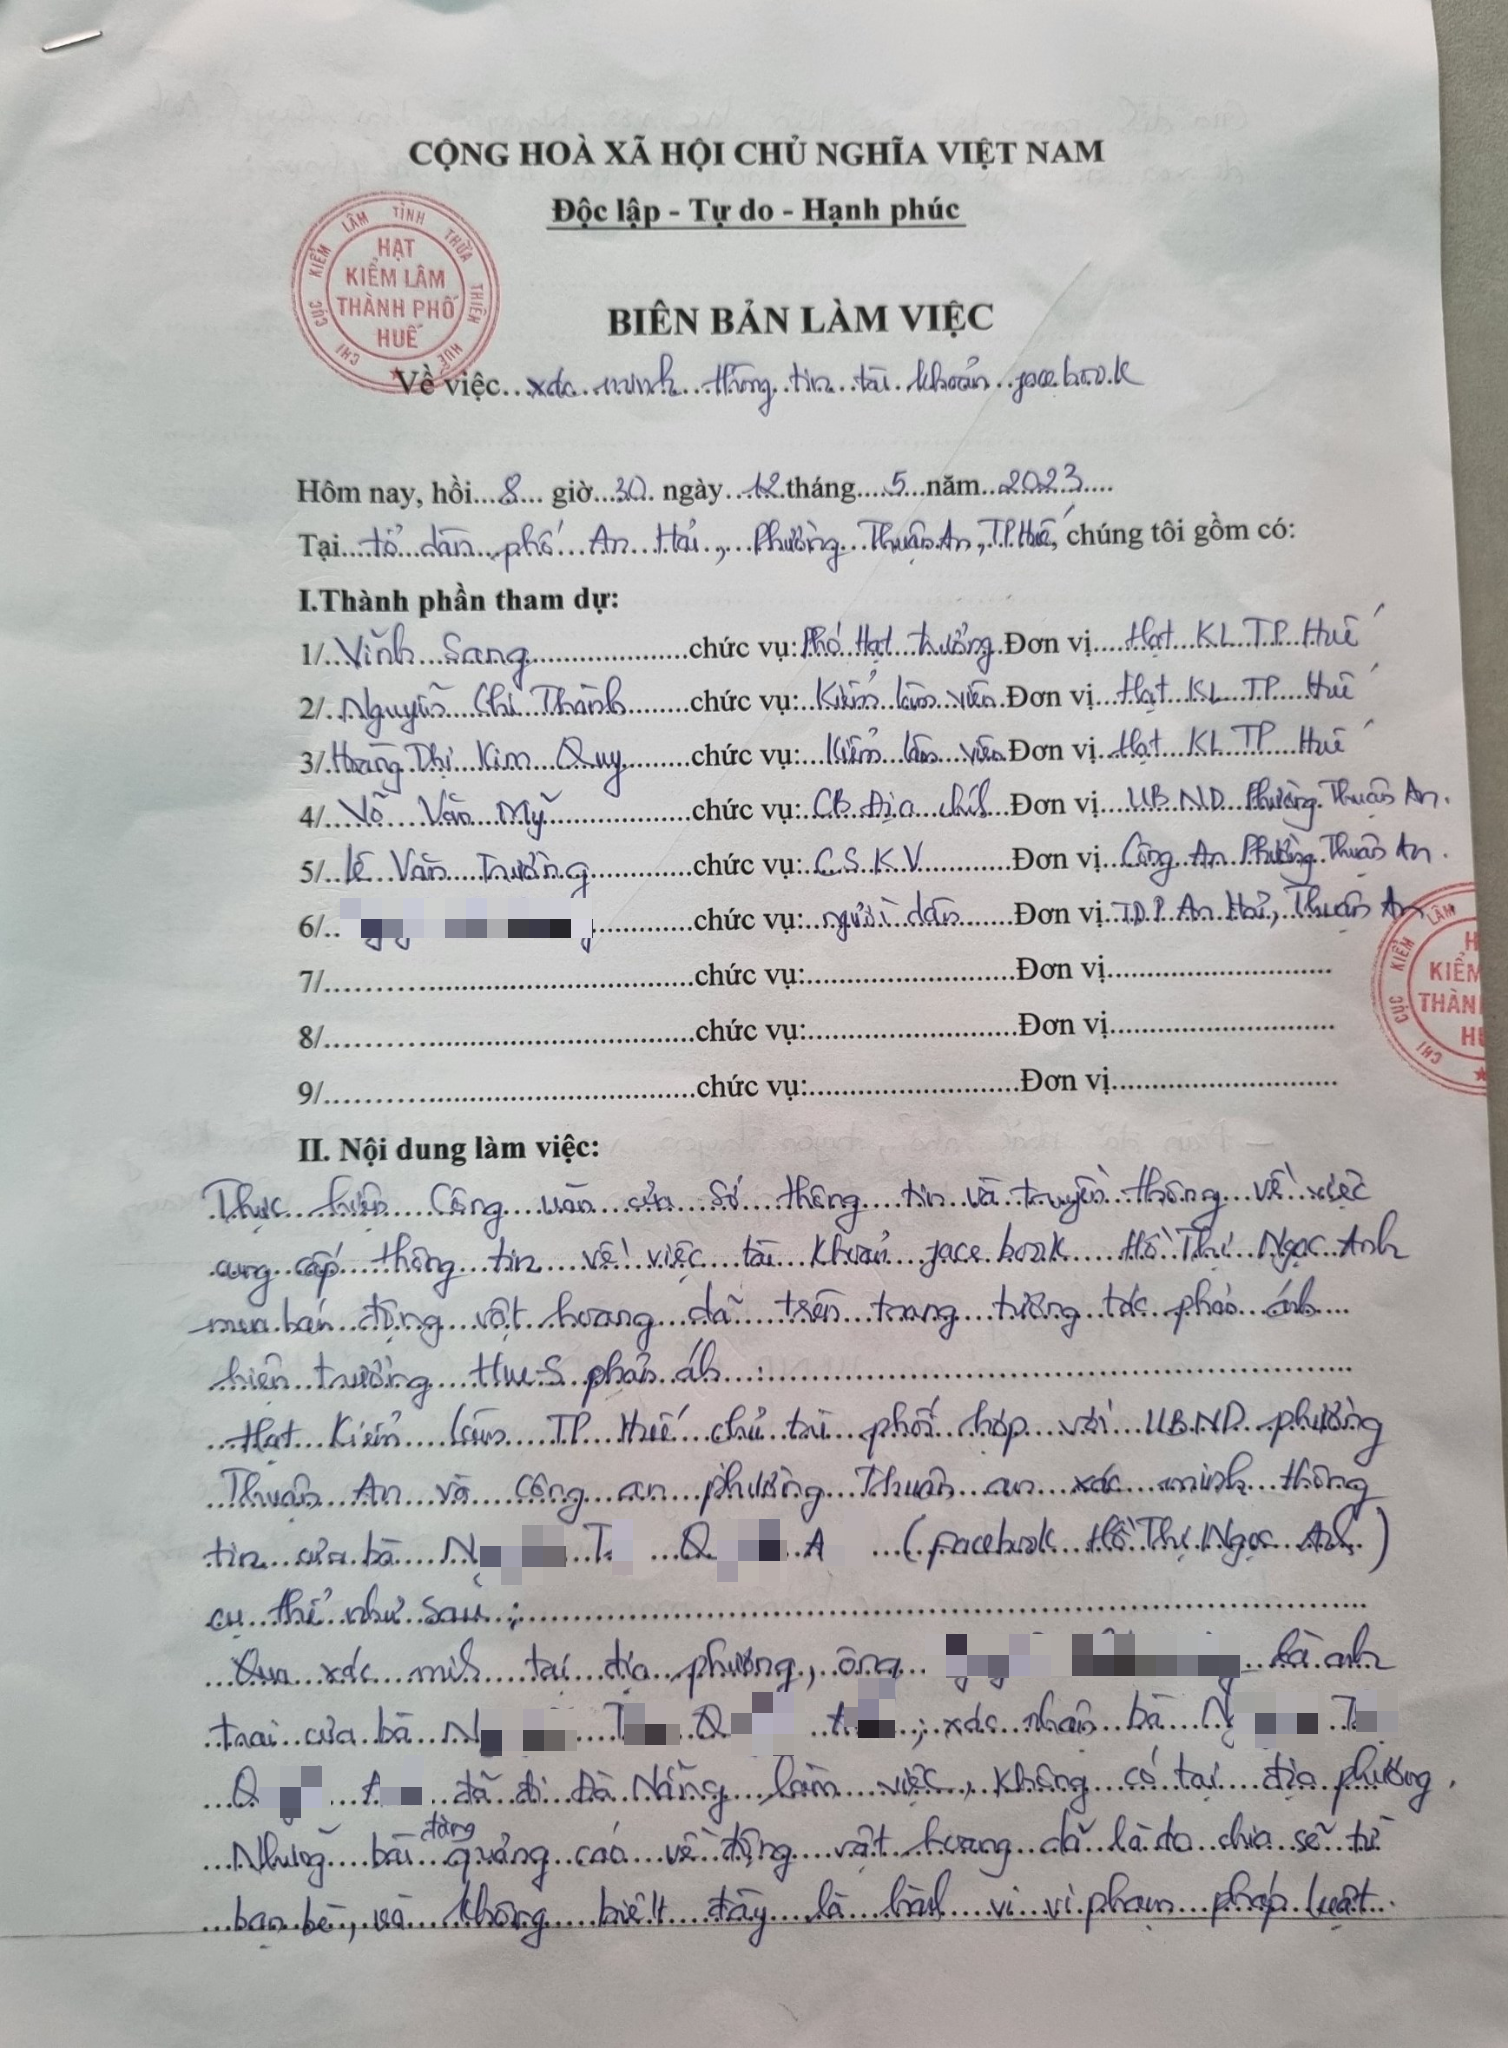 CỘNG HOÀ XÃ HỘI CHỦ NGHĨA VIỆT NAM
Độc lập - Tự do - Hạnh phúc
CHI CỤC KIỂM LÂM TỈNH THỪA THIÊN HUẾ
HẠT
KIỂM LÂM
THÀNH PHỐ
HUẾ
BIÊN BẢN LÀM VIỆC
Về việc xác minh thông tin tài khoản facebook
Hôm nay, hồi 8 giờ 30 ngày 12 tháng 5 năm 2023
Tại tổ dân phố An Hải, Phường Thuận An, TP Huế, chúng tôi gồm có:
I.Thành phần tham dự:
1/ Vĩnh Sang chức vụ: Phó Hạt trưởng Đơn vị Hạt KL TP Huế
2/ Nguyễn Chí Thành chức vụ: Kiểm lâm viên Đơn vị Hạt KL TP Huế
3/ Hoàng Thị Kim Quy chức vụ: Kiểm lâm viên Đơn vị Hạt KL TP Huế
4/ Võ Văn Mỹ chức vụ: CB Địa chính Đơn vị UBND Phường Thuận An.
5/ Lê Văn Trưởng chức vụ: C.S.K.V Đơn vị Công An Phường Thuận An.
6/ chức vụ: người dân Đơn vị TDP An Hải, Thuận An
7/ chức vụ: Đơn vị
8/ chức vụ: Đơn vị
9/ chức vụ: Đơn vị
CHI CỤC KIỂM LÂM
KIỂM
THÀN
II. Nội dung làm việc:
Thực hiện Công văn của Sở thông tin và truyền thông về việc
cung cấp thông tin về việc tài khoản facebook Hồ Thị Ngọc Anh
mua bán động vật hoang dã trên trang tương tác phản ánh
hiện trường Hue-S phản ánh :
Hạt Kiểm lâm TP Huế chủ trì phối hợp với UBND phường
Thuận An và Công an phường Thuận an xác minh thông
tin của bà N T Q A (facebook Hồ Thị Ngọc Anh)
cụ thể như sau :
Qua xác minh tại địa phương, ông là anh
trai của bà N T Q ; xác nhận bà N T
Q A đã đi Đà Nẵng làm việc, không có tại địa phương.
Những bài đăng quảng cáo về động vật hoang dã là do chia sẽ từ
bạn bè, và không biết đây là hành vi vi phạm pháp luật.